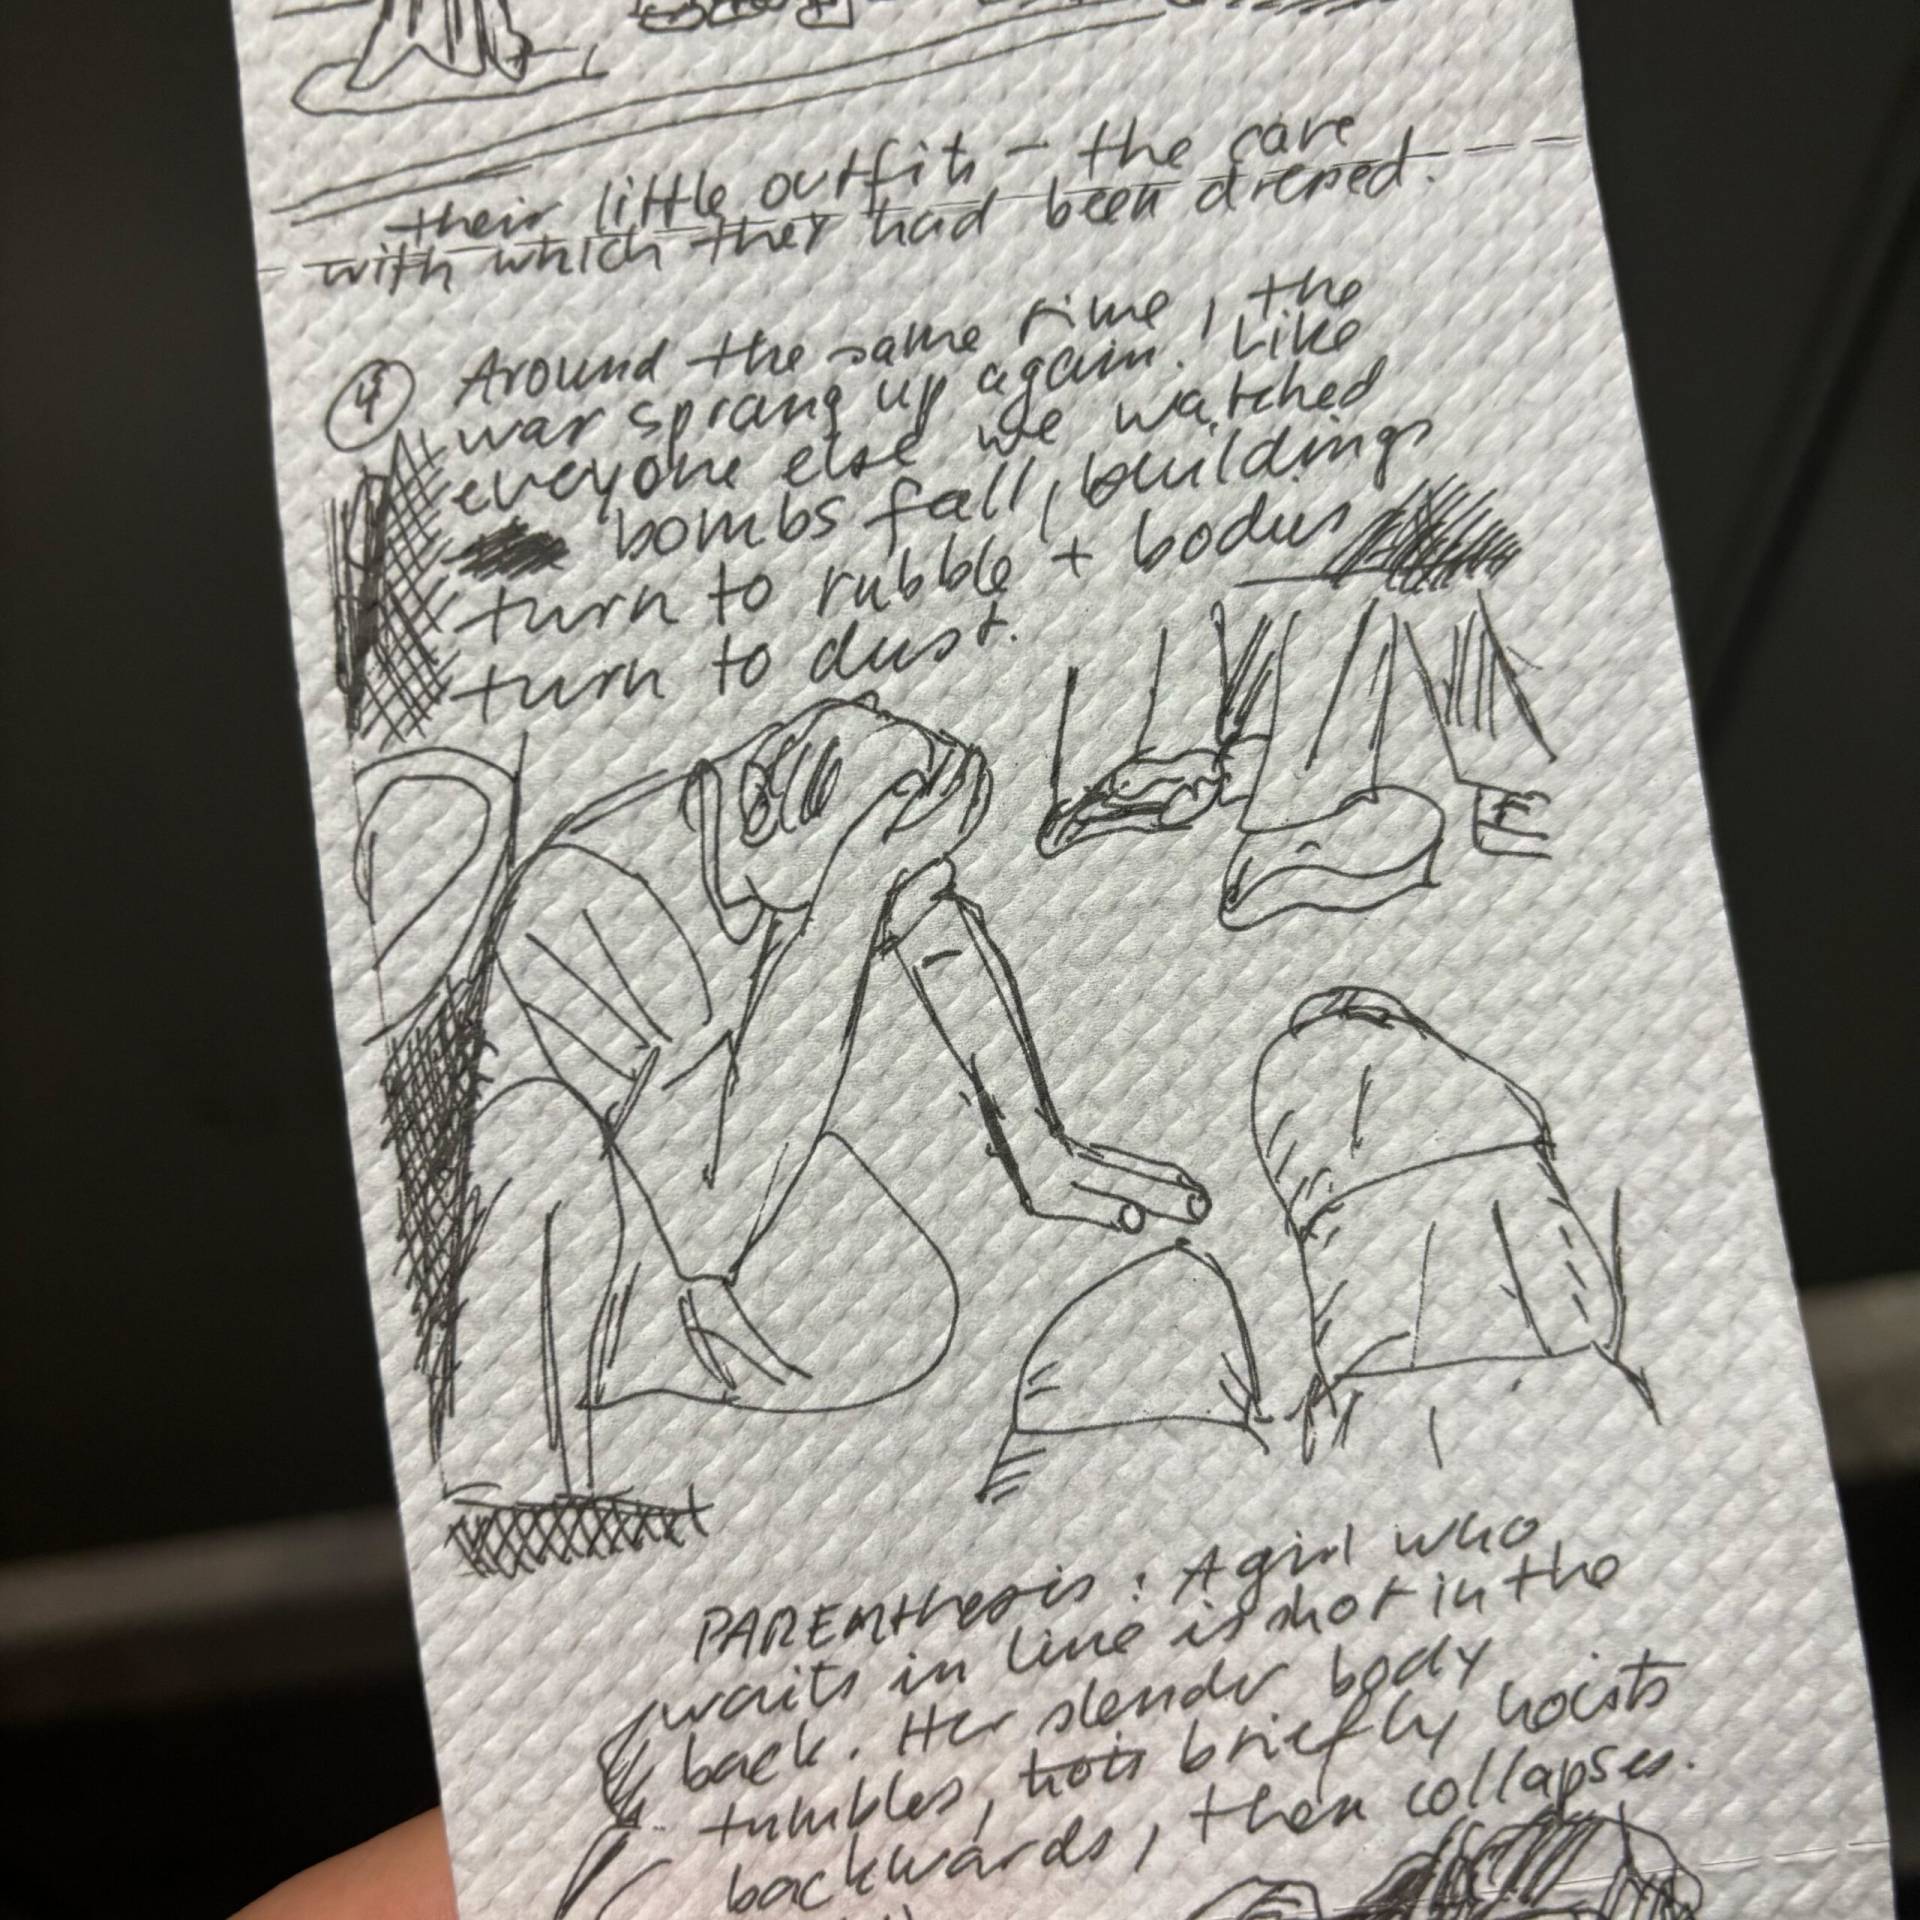 their little outfits - the care
with which they had been dressed.
4 Around the same time, the
war sprang up again. Like
everyone else we watched
bombs fall, buildings
turn to rubble + bodies
turn to dust.
PARENthesis: A girl who
waits in line is shot in the
back. Her slender body
tumbles, hois briefly hoists
backwards, then collapses.